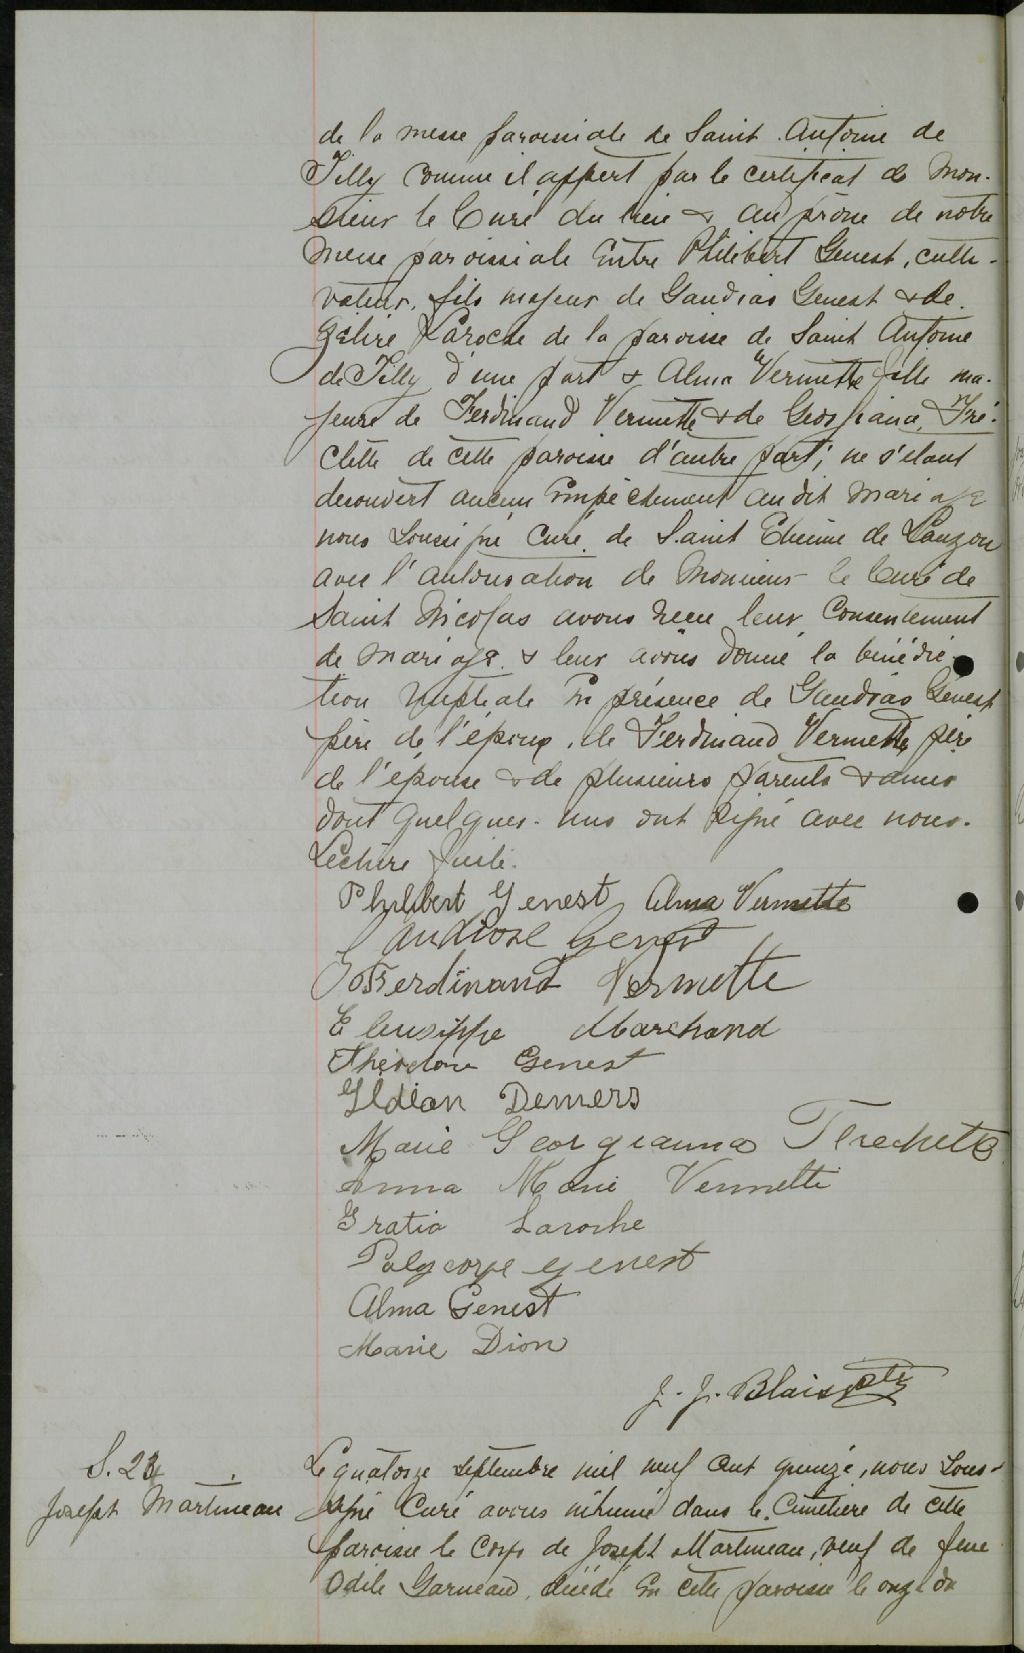 de la messe paroissiale de Saint Antoine de
Tilly comme il appert par le certificat de Mon-
sieur le Curé du lieu & au prône de notre
messe paroissiale Entre Philibert Genest, culti-
vateur, fils majeur de Gaudias Genest & de
Zélire Laroche de la paroisse de Saint Antoine
de Tilly d'une part & Alma Vermette fille ma-
jeure de Ferdinand Vermette & de Georgiana Fré-
chette de cette paroisse d'autre part; ne s'étant
découvert aucun Empêchement au dit mariage
nous soussigné Curé de Saint Etienne de Lauzon
avec l'autorisation de Monsieur le Curé de
Saint Nicolas avons reçu leur Consentement
de mariage & leur avons donné la bénédic-
tion nuptiale En présence de Gaudias Genest
père de l'époux, de Ferdinand Vermette père
de l'épouse & de plusieurs parents & amis
dont quelques-uns ont signé avec nous.
Lecture faite.
Philibert Genest Alma Vermette
Gaudiose Genest
Ferdinand Vermette
Eleusippe Marchand
Théodore Genest
Gldéon Demers
Marie Georgianna Flechette
Anna Marie Vermette
Gratia Laroche
Polycarpe Genest
Alma Genest
Marie Dion
J. J. Blais ptr
S. 24
Joseph Martineau
Le quatorze septembre mil neuf cent quinze, nous sous-
signé Curé avons inhumé dans le Cimetière de cette
paroisse le corps de Joseph Martineau, veuf de feue
Odile Garneau, décédé En cette paroisse le onze du